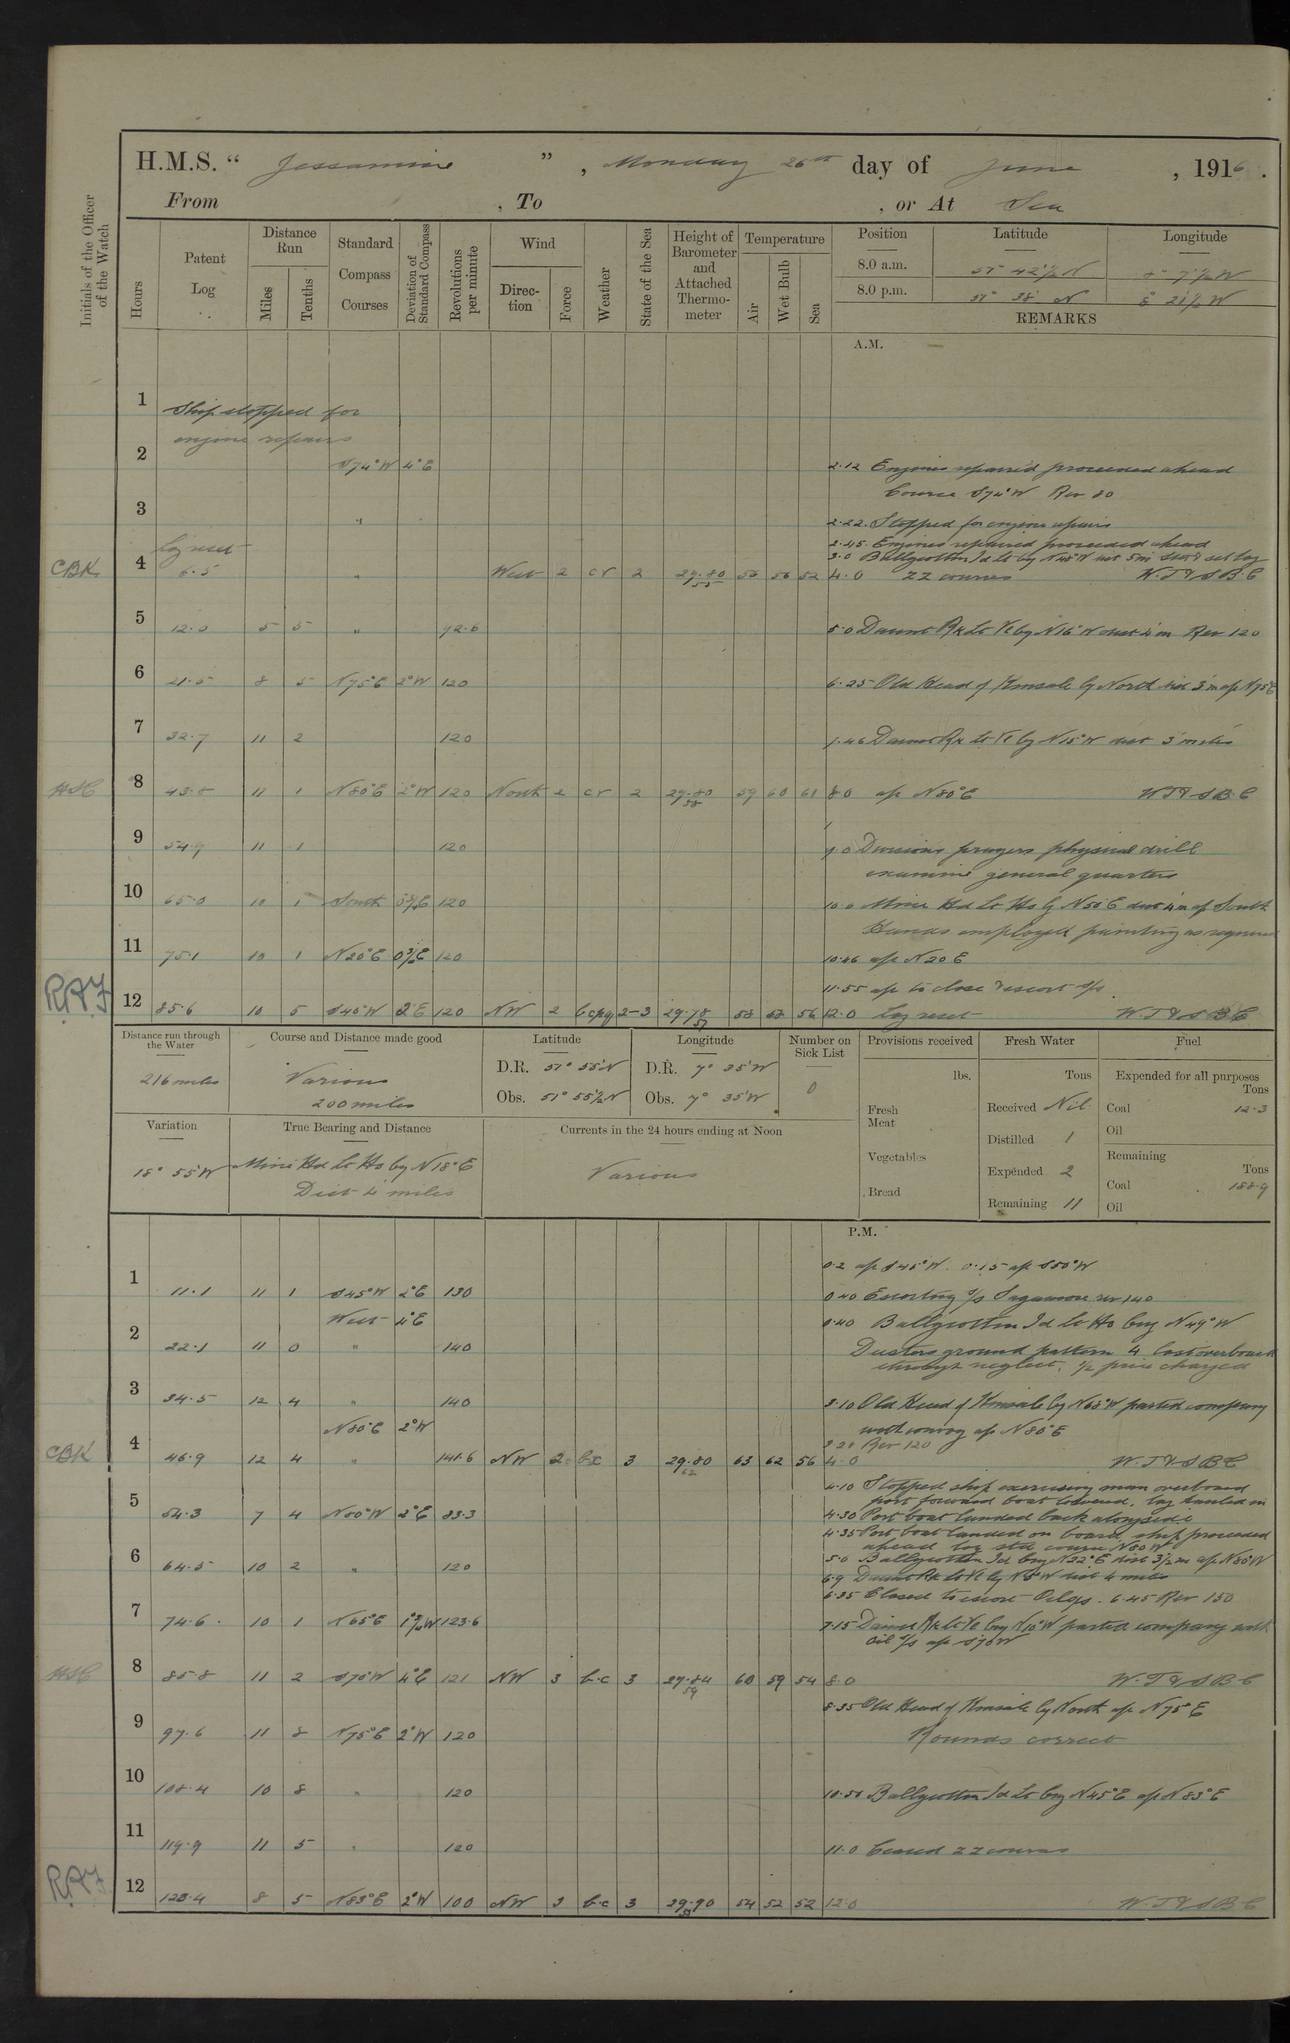 H.M.S. “ Jessamine ”, Monday 26th day of June, 1916.
From , To , or At Sea
Initials of the Officer of the Watch
Hours
Patent Log
Distance Run
Miles
Tenths
Standard Compass Courses
Deviation of Standard Compass
Revolutions per minute
Wind
Direction
Force
Weather
State of the Sea
Height of Barometer and Attached Thermometer
Temperature
Air
Wet Bulb
Sea
Position Latitude Longitude
8.0 a.m. 51° 42½ N 8° 7½ W
8.0 p.m. 51° 38' N 8° 21½ W
REMARKS
A.M.
1 Ship stopped for
engine repairs
2 S74°W 4°E 2.12 Engines repaired proceeded ahead
Course S74°W Rev 80
3 " 2.22 Stopped for engine repairs
Log reset 2.45 Engines repaired proceeded ahead
3.0 Ballycotton Id Lt by N48°W dist 5m
CBK 4 6.5 " West 2 cr 2 29.80 52 4.0 ZZ courses W.T & S.B.E
5 12.0 5 5 " 92.6 5.0 Daunt Rk Lt Ve by N16°W dist 4m Rev 120
6 21.5 8 5 N75°E 2°W 120 6.25 Old Head of Kinsale by North dist 3m a/c N75°E
7 32.7 11 2 120 7.46 Daunt Rk Lt Ve by N15°W dist 3 miles
8 43.8 11 1 N80°E 2°W 120 North 2 cr 2 29.80 58 59 60 61 8.0 a/c N80°E W.T & S.B.E
9 54.9 11 1 120 9.0 Divisions prayers physical drill
examine general quarters
10 65.0 10 1 South 120 10.0 Mine Hd Lt Ho by N50°E dist 4m a/c South
Hands employed painting as required
11 75.1 10 1 N20°E 120 10.46 a/c N20E
11.55 a/c to close & escort S/s
RAF 12 85.6 10 5 S40°W 2°E 120 NW 2 bcpq 2-3 29.78 57 58 56 12.0 Log reset W.T & S.B.E
Distance run through the Water
216 miles
Course and Distance made good
Various
200 miles
Latitude
D.R. 51° 55'N
Obs. 51° 55½'N
Longitude
D.R. 7° 35'W
Obs. 7° 35'W
Number on Sick List
0
Provisions received
lbs.
Fresh Meat
Vegetables
Bread
Fresh Water
Tons
Received Nil
Distilled 1
Expended 2
Remaining 11
Fuel
Expended for all purposes
Tons
Coal 12.3
Oil
Remaining
Tons
Coal 188.9
Oil
Variation
18° 55'W
True Bearing and Distance
Mine Hd Lt Ho by N18°E
Dist 4 miles
Currents in the 24 hours ending at Noon
Various
P.M.
0.2 a/c S45°W. 0.15 a/c S50°W
1 11.1 11 1 S45°W 2°E 130 0.40 Escorting S/s Sagamore rev 140
West 4°E 0.40 Ballycotton Id Lt Ho brg N49°W
2 22.1 11 0 " 140 Dusters ground pattern 4 lost overboard
through neglect. ½ price charged
3 34.5 12 4 " 140 3.10 Old Head of Kinsale by N68°W parted company
N80°E 2°W with convoy a/c N80°E
3.20 Rev 120
CBK 4 46.9 12 4 " 141.6 NW 2 bc 3 29.80 62 63 62 56 4.0 W.T & S.B.E
4.10 Stopped ship exercising man overboard
port forward boat lowered. log hauled in
5 54.3 7 4 N80°W 2°E 83.3 4.30 Port boat landed back alongside
4.35 Port boat landed on board ship proceeded
ahead log std course N80W
6 64.5 10 2 " 120 5.0 Ballycotton Id. brg N22°E dist 3½m a/c N80°W
6.9 Daunt Rk Lt Ve by N5°W dist 4 miles
6.35 Closed to escort Oiler. 6.45 Rev 130
7 74.6 10 1 N65°E 123.6 7.15 Daunt Rk Lt Ve brg N10°W parted company with
Oil S/s a/c S70W
8 85.8 11 2 S70°W 4°E 121 NW 3 b.c 3 29.84 59 60 59 54 8.0 W.T & S.B.E
8.35 Old Head of Kinsale by North a/c N75°E
9 97.6 11 8 N75°E 2°W 120 Rounds correct
10 108.4 10 8 " 120 10.50 Ballycotton Id Lt brg N45°E a/c N83°E
11 119.9 11 5 " 120 11.0 Ceased ZZ courses
RAF 12 128.4 8 5 N83°E 2°W 100 NW 3 b.c 3 29.90 54 52 52 12.0 W.T & S.B.E